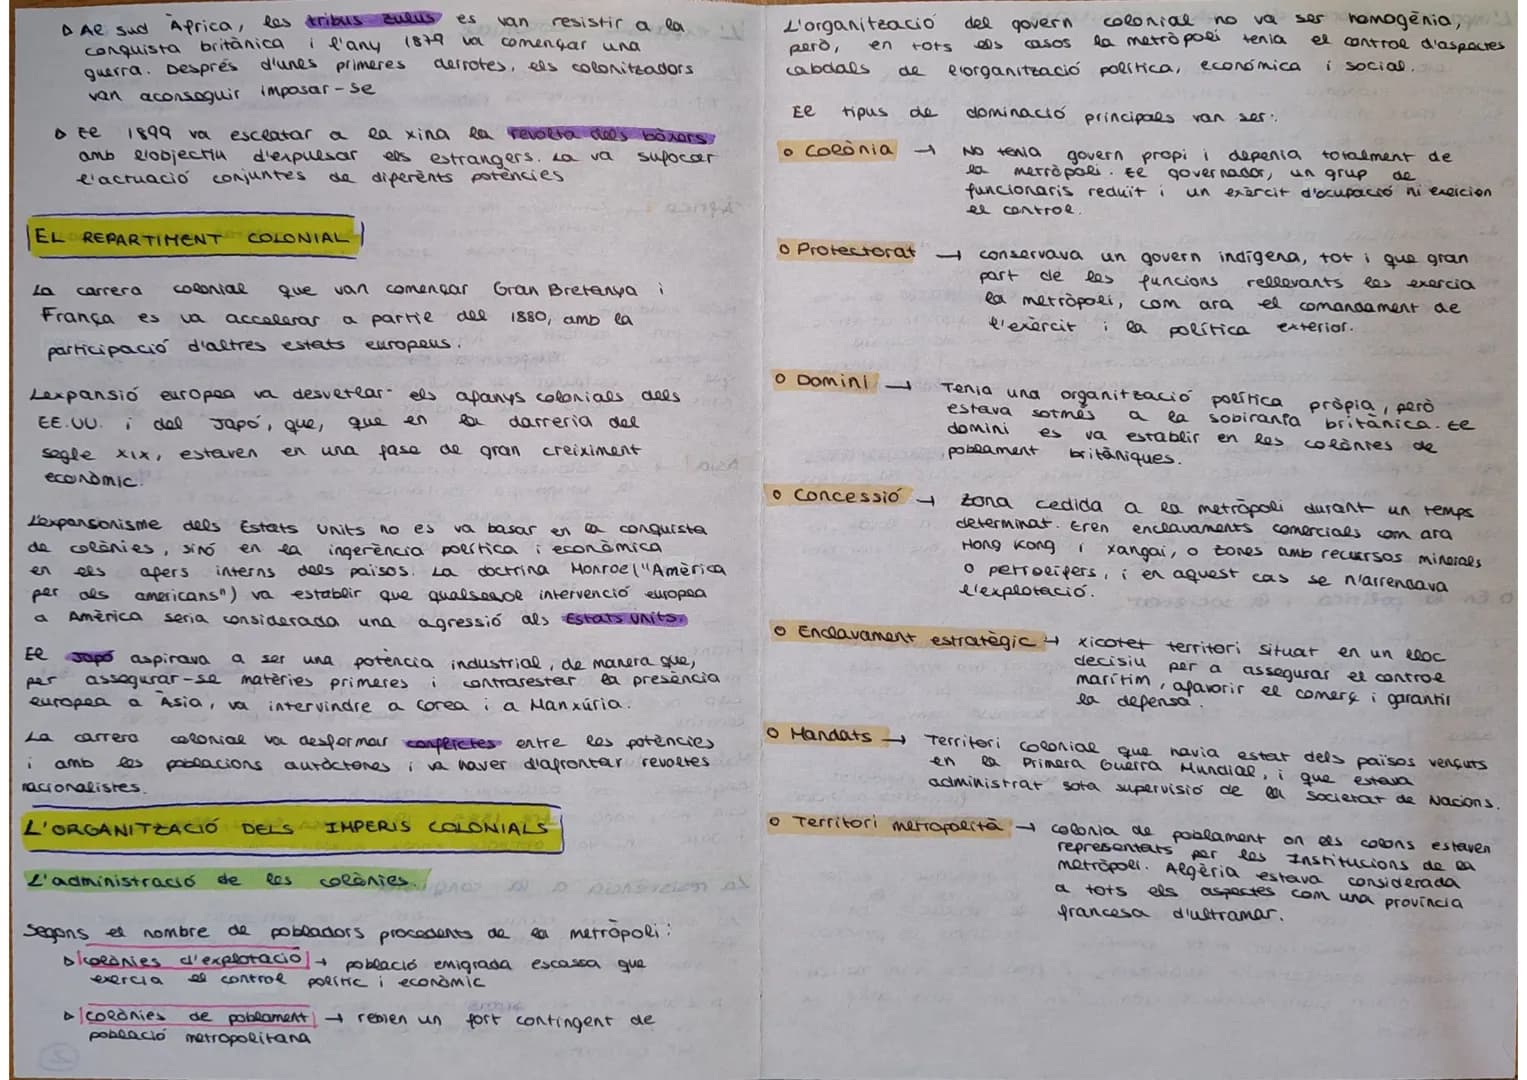 ▷ Al sud Àfrica, les tribus zulus es van resistir a la
conquista britànica i l'any 1879 va començar una
guerra. Després d'unes primeres derrotes, els colonitzadors
van aconseguir imposar-se
▷ El 1899 va esclatar a la xina la revolta dels bòxers
amb l'objectiu d'expulsar els estrangers. La va sufocar
l'actuació conjuntes de diferènts potències
EL REPARTIMENT COLONIAL
La carrera colonial que van començar Gran Bretanya i
França es va accelerar a partir del 1880, amb la
participació d'altres estats europeus.
L'expansió europea va desvetlar els afanys colonials dels
EE.UU. i del Japó, que, que en la darreria del
segle XIX, estaven en una fase de gran creiximent
econòmic.
L'expansonisme dels Estats Units no es va basar en la conquista
de colònies, sinó en la ingerència política i econòmica
en els afers interns dels països. La doctrina Monroe ("Amèrica
per als americans") va establir que qualsevol intervenció europea
a Amèrica seria considerada una agressió als Estats Units.
El Japó aspirava a ser una potència industrial, de manera que,
per assegurar-se matèries primeres i contrarestar la presència
europea a Àsia, va intervindre a Corea i a Manxúria.
La carrera colonial va desfermar conflictes entre les potències
i amb les poblacions autòctones i va haver d'afrontar revoltes
nacionalistes.
L'ORGANITZACIÓ DELS IMPERIS COLONIALS
L'administració de les colònies.
Segons el nombre de pobladors procedents de la metròpoli:
▷ colònies d'explotació → població emigrada escassa que
exercia el control polític i econòmic
▷ colònies de poblament → rebien un fort contingent de
població metropolitana
2
L'organització del govern colonial no va ser homogènia,
però, en tots els casos la metròpoli tenia el control d'aspectes
cabdals de l'organització política, económica i social.
El tipus de dominació principals van ser:
o Colònia → No tenia govern propi i depenia totalment de
la metròpoli. El governador, un grup de
funcionaris reduït i un exèrcit d'ocupació ni exercien
el control.
o Protectorat → conservava un govern indígena, tot i que gran
part de les funcions rellevants les exercia
la metròpoli, com ara el comandament de
l'exèrcit i la política exterior.
o Domini → Tenia una organització política pròpia, però
estava sotmés a la sobirania britànica. El
domini es va establir en les colònies de
poblament britàniques.
o Concessió → zona cedida a la metròpoli durant un temps
determinat. Eren enclavaments comercials com ara
Hong Kong i xangai, o zones amb recursos minerals
o petrolífers, i en aquest cas se n'arrendava
l'explotació.
o Enclavament estratègic → xicotet territori situat en un lloc
decisiu per a assegurar el control
marítim, afavorir el comerç i garantir
la defensa.
o Mandats → Territori colonial que havia estat dels països vençuts
en la Primera Guerra Mundial, i que estava
administrat sota supervisió de la Societat de Nacions.
o Territori metropolità → colonia de poblament on els colons estaven
representats per les Institucions de la
metròpoli. Algèria estava considerada
a tots els aspectes com una província
francesa d'ultramar.